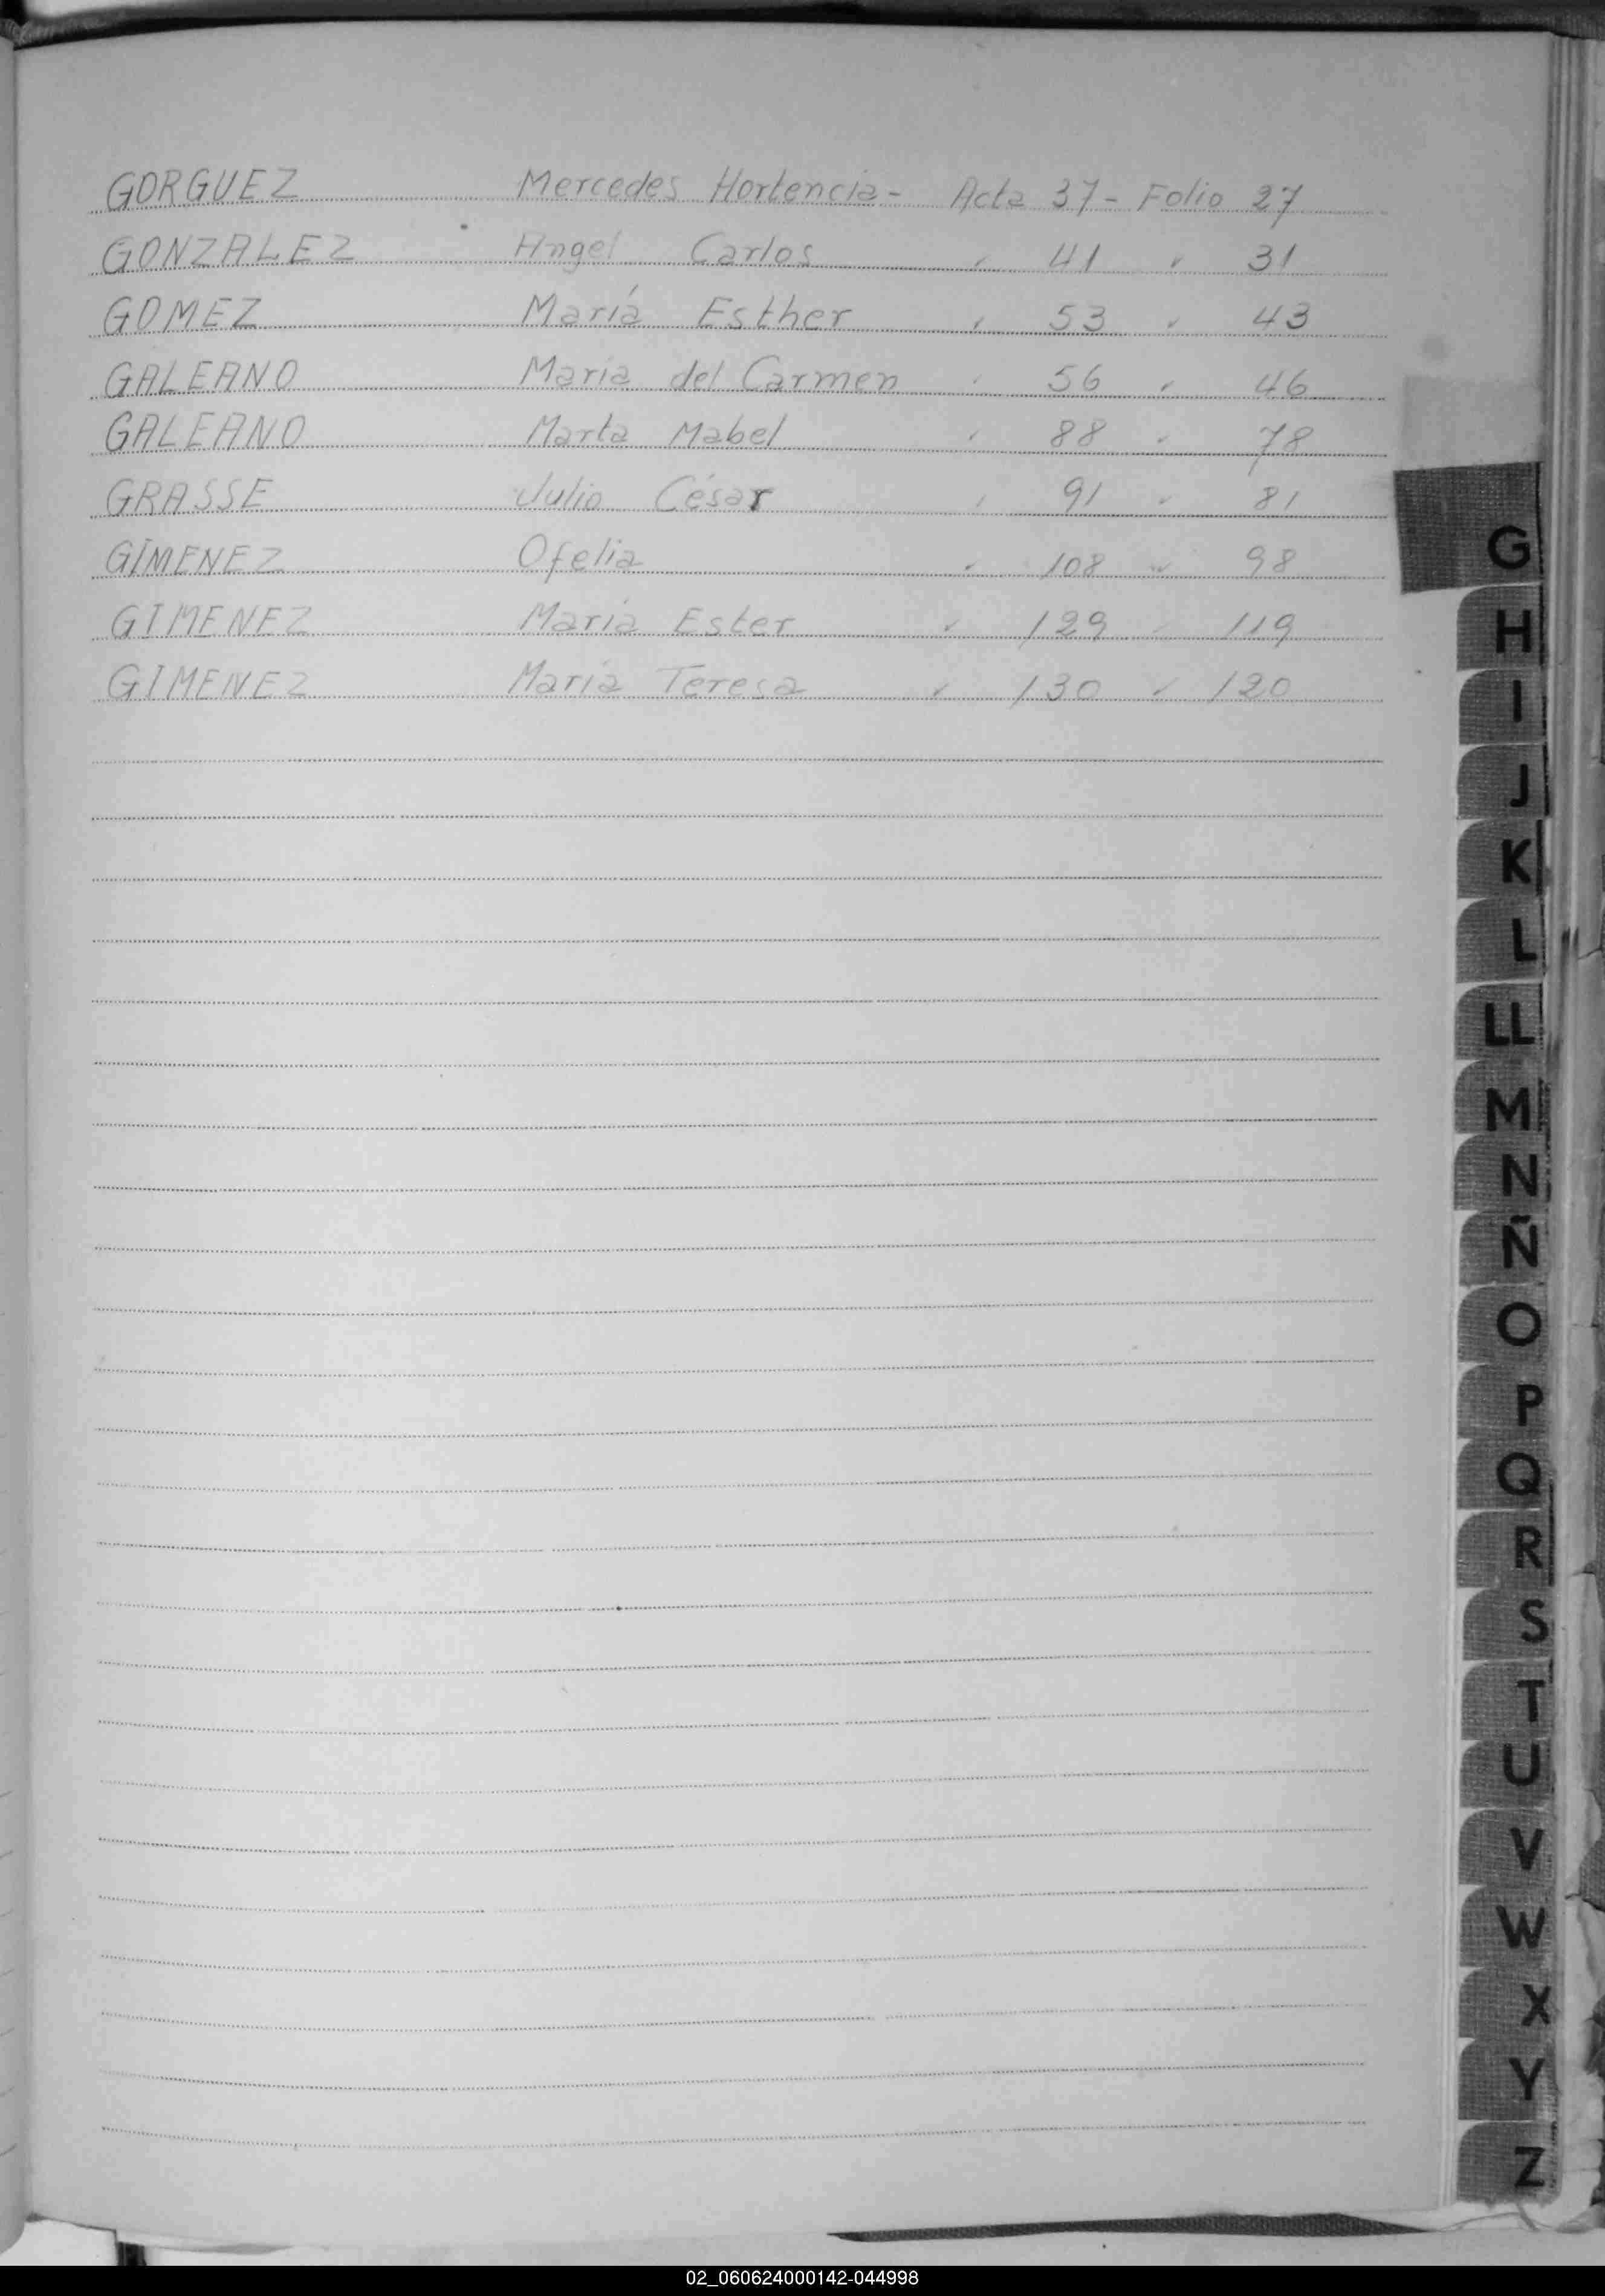 GORGUEZ Mercedes Hortencia - Acta 37 - Folio 27
GONZALEZ Angel Carlos " 41 " 31
GOMEZ María Esther " 53 " 43
GALEANO Maria del Carmen " 56 " 46
GALEANO Marta Mabel " 88 " 78
GRASSE Julio César " 91 " 81
GIMENEZ Ofelia " 108 " 98
GIMENEZ María Ester " 129 " 119
GIMENEZ María Teresa " 130 " 120
G
H
I
J
K
L
LL
M
N
Ñ
O
P
Q
R
S
T
U
V
W
X
Y
Z
02_060624000142-044998